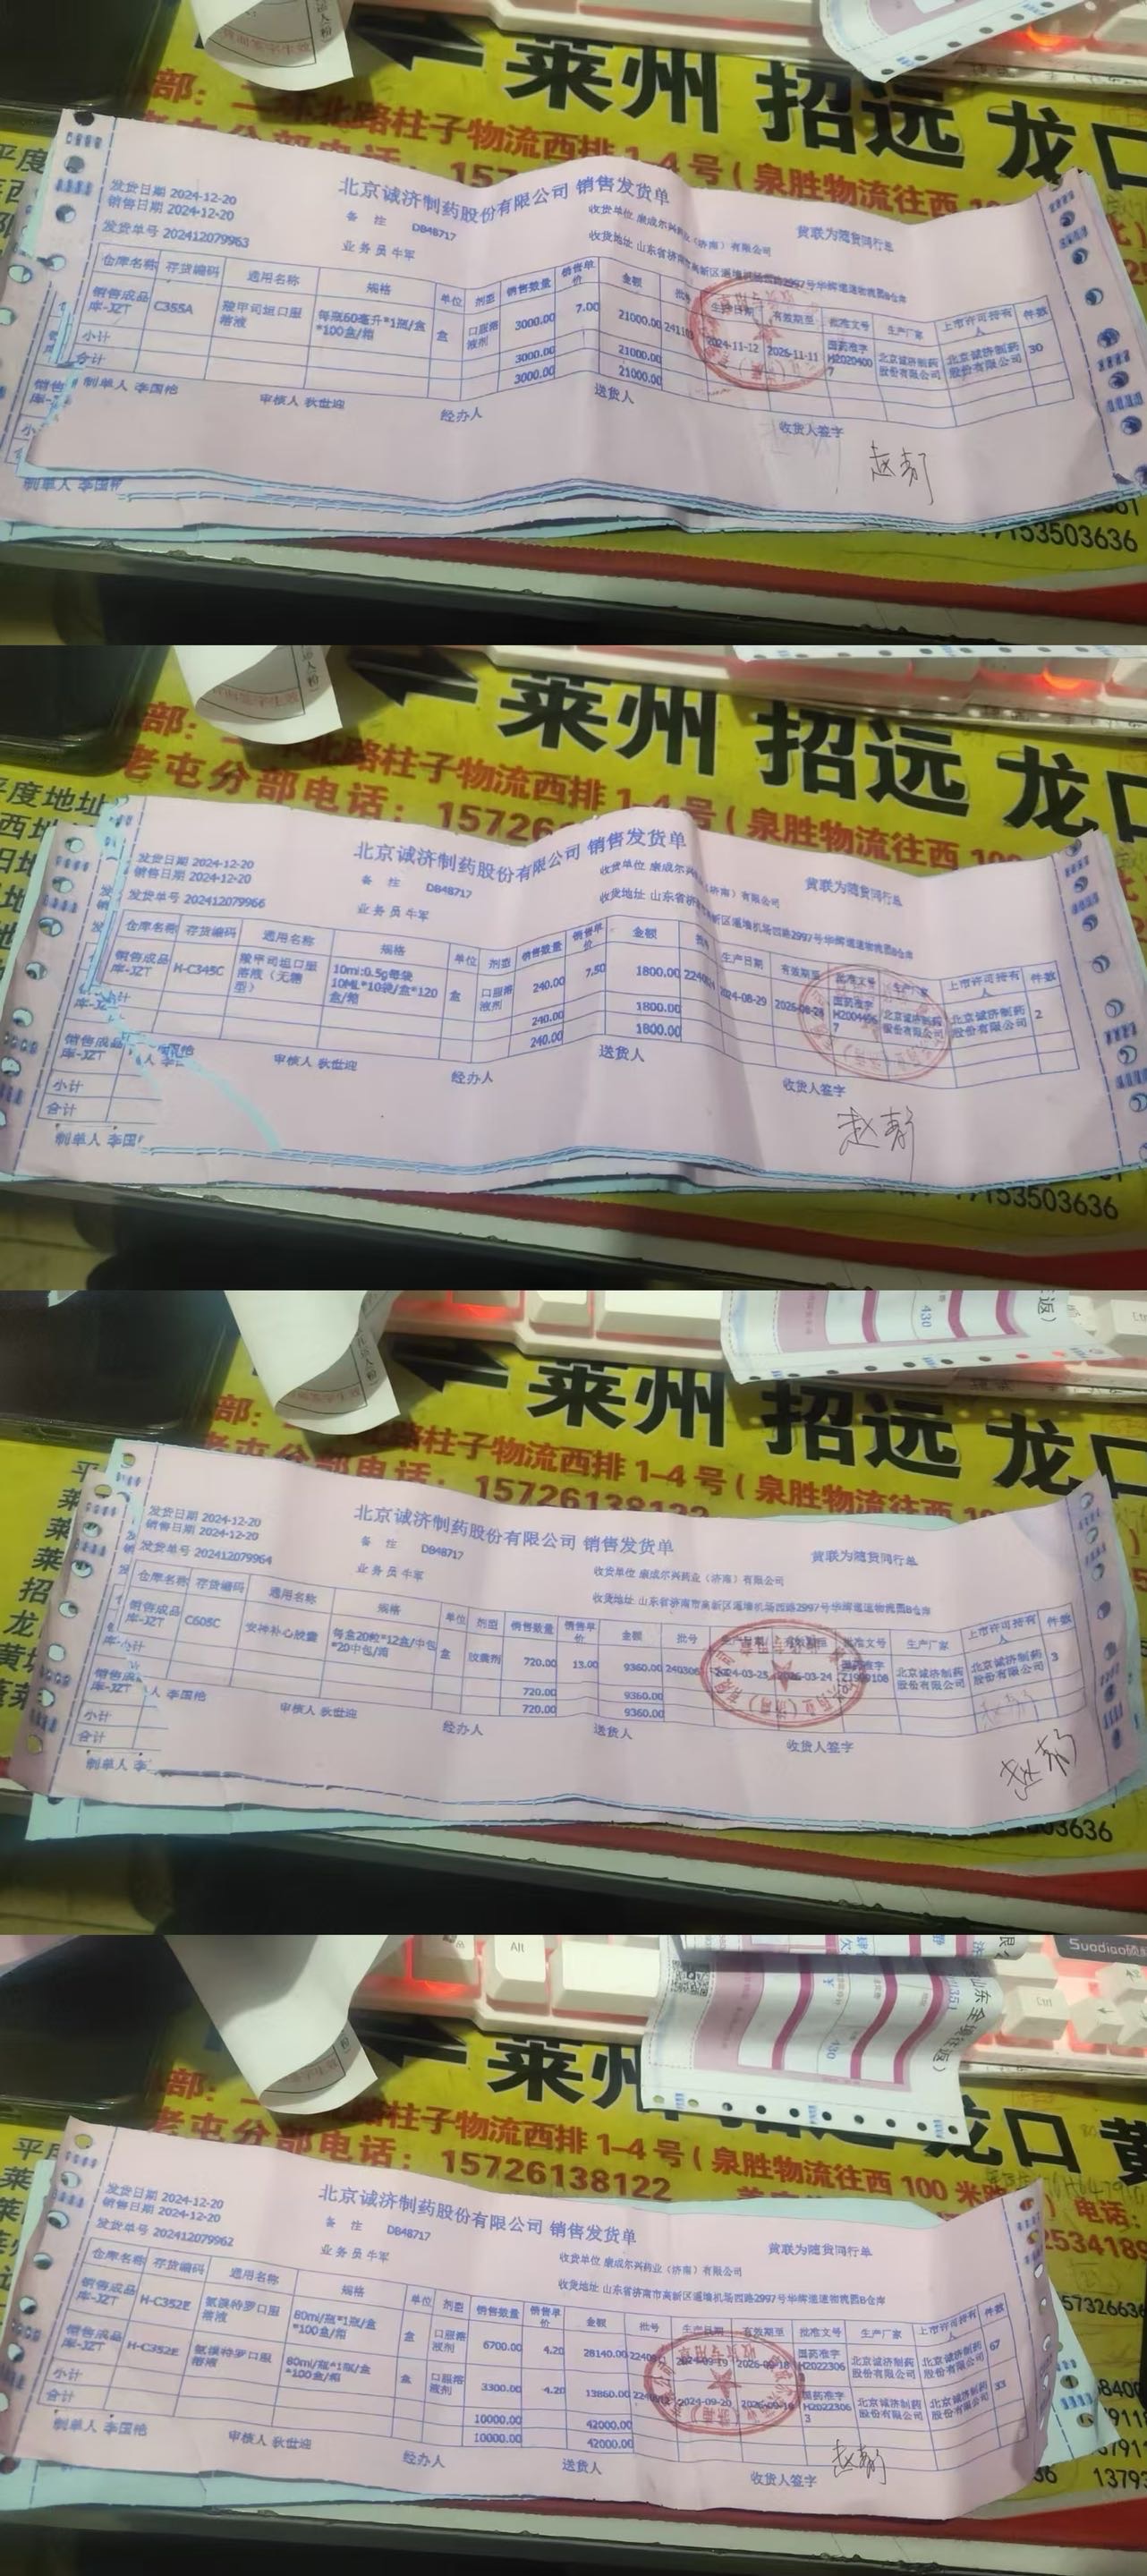 莱州 招远 龙口
部：二环北路柱子物流西排 1-4 号（泉胜物流往西 10
北京诚济制药股份有限公司 销售发货单
发货日期 2024-12-20
销售日期 2024-12-20
备 注 DB48717
收货单位 康成尔兴药业（济南）有限公司
黄联为随货同行单
发货单号 202412079963
业务员 牛军
收货地址 山东省济南市高新区遥墙机场西路2997号华辉遥遥物流园B仓库
仓库名称 存货编码 通用名称 规格 单位 剂型 销售数量 销售单价 金额 批号 生产日期 有效期至 批准文号 生产厂家 上市许可持有人 件数
销售成品库-JZT C355A 羧甲司坦口服溶液 每瓶60毫升*1瓶/盒*100盒/箱 盒 口服溶液剂 3000.00 7.00 21000.00 2024-11-12 2026-11-11 国药准字H20204007 北京诚济制药股份有限公司 北京诚济制药股份有限公司 30
小计 3000.00 21000.00
合计 3000.00 21000.00
制单人 李国艳 审核人 狄世迎 经办人 送货人 收货人签字
赵静
制单人 李国艳
153503636
莱州 招远 龙口
部： 北路柱子物流西排 1-4 号（泉胜物流往西 100
老屯分部电话：15726
北京诚济制药股份有限公司 销售发货单
发货日期 2024-12-20
销售日期 2024-12-20
备 注 DB48717
收货单位 康成尔兴药业（济南）有限公司
黄联为随货同行单
发货单号 202412079966
业务员 牛军
收货地址 山东省济南市高新区遥墙机场西路2997号华辉遥遥物流园B仓库
仓库名称 存货编码 通用名称 规格 单位 剂型 销售数量 销售单价 金额 批号 生产日期 有效期至 批准文号 生产厂家 上市许可持有人 件数
销售成品库-JZT H-C345C 羧甲司坦口服溶液（无糖型） 10ml:0.5g每袋10ML*10袋/盒*120盒/箱 盒 口服溶液剂 240.00 7.50 1800.00 2024-08-29 2026-08-28 国药准字 北京诚济制药股份有限公司 北京诚济制药股份有限公司 2
240.00 1800.00
240.00 1800.00
审核人 狄世迎 经办人 送货人 收货人签字
赵静
小计
合计
制单人 李国
153503636
莱州 招远 龙口
部： 路柱子物流西排 1-4 号（泉胜物流往西 10
15726138122
北京诚济制药股份有限公司 销售发货单
发货日期 2024-12-20
销售日期 2024-12-20
备 注 DB48717
收货单位 康成尔兴药业（济南）有限公司
黄联为随货同行单
发货单号 202412079964
业务员 牛军
收货地址 山东省济南市高新区遥墙机场西路2997号华辉遥遥物流园B仓库
仓库名称 存货编码 通用名称 规格 单位 剂型 销售数量 销售单价 金额 批号 生产日期 有效期至 批准文号 生产厂家 上市许可持有人 件数
销售成品库-JZT C605C 安神补心胶囊 每盒20粒*12盒/中包*20中包/箱 盒 胶囊剂 720.00 13.00 9360.00 2024-03-25 2026-03-24 国药准字 北京诚济制药股份有限公司 北京诚济制药股份有限公司 3
720.00 9360.00
720.00 9360.00
李国艳 审核人 狄世迎 经办人 送货人 收货人签字
赵静
小计
合计
制单人 李
3636
莱州 龙口
部：二环北路柱子物流西排 1-4 号（泉胜物流往西 100 米
老屯分部电话：15726138122
北京诚济制药股份有限公司 销售发货单
发货日期 2024-12-20
销售日期 2024-12-20
备 注 DB48717
收货单位 康成尔兴药业（济南）有限公司
黄联为随货同行单
发货单号 202412079962
业务员 牛军
收货地址 山东省济南市高新区遥墙机场西路2997号华辉遥遥物流园B仓库
仓库名称 存货编码 通用名称 规格 单位 剂型 销售数量 销售单价 金额 批号 生产日期 有效期至 批准文号 生产厂家 上市许可持有人 件数
销售成品库-JZT H-C352E 氨溴特罗口服溶液 80ml/瓶*1瓶/盒*100盒/箱 盒 口服溶液剂 6700.00 4.20 28140.00 2024-09-19 2026-09-18 国药准字H2022306 北京诚济制药股份有限公司 北京诚济制药股份有限公司 67
销售成品库-JZT H-C352E 氨溴特罗口服溶液 80ml/瓶*1瓶/盒*100盒/箱 盒 口服溶液剂 3300.00 4.20 13860.00 2024-09-20 2026-09-19 国药准字H20223063 北京诚济制药股份有限公司 北京诚济制药股份有限公司 33
小计 10000.00 42000.00
合计 10000.00 42000.00
制单人 李国艳 审核人 狄世迎 经办人 送货人 收货人签字
赵静